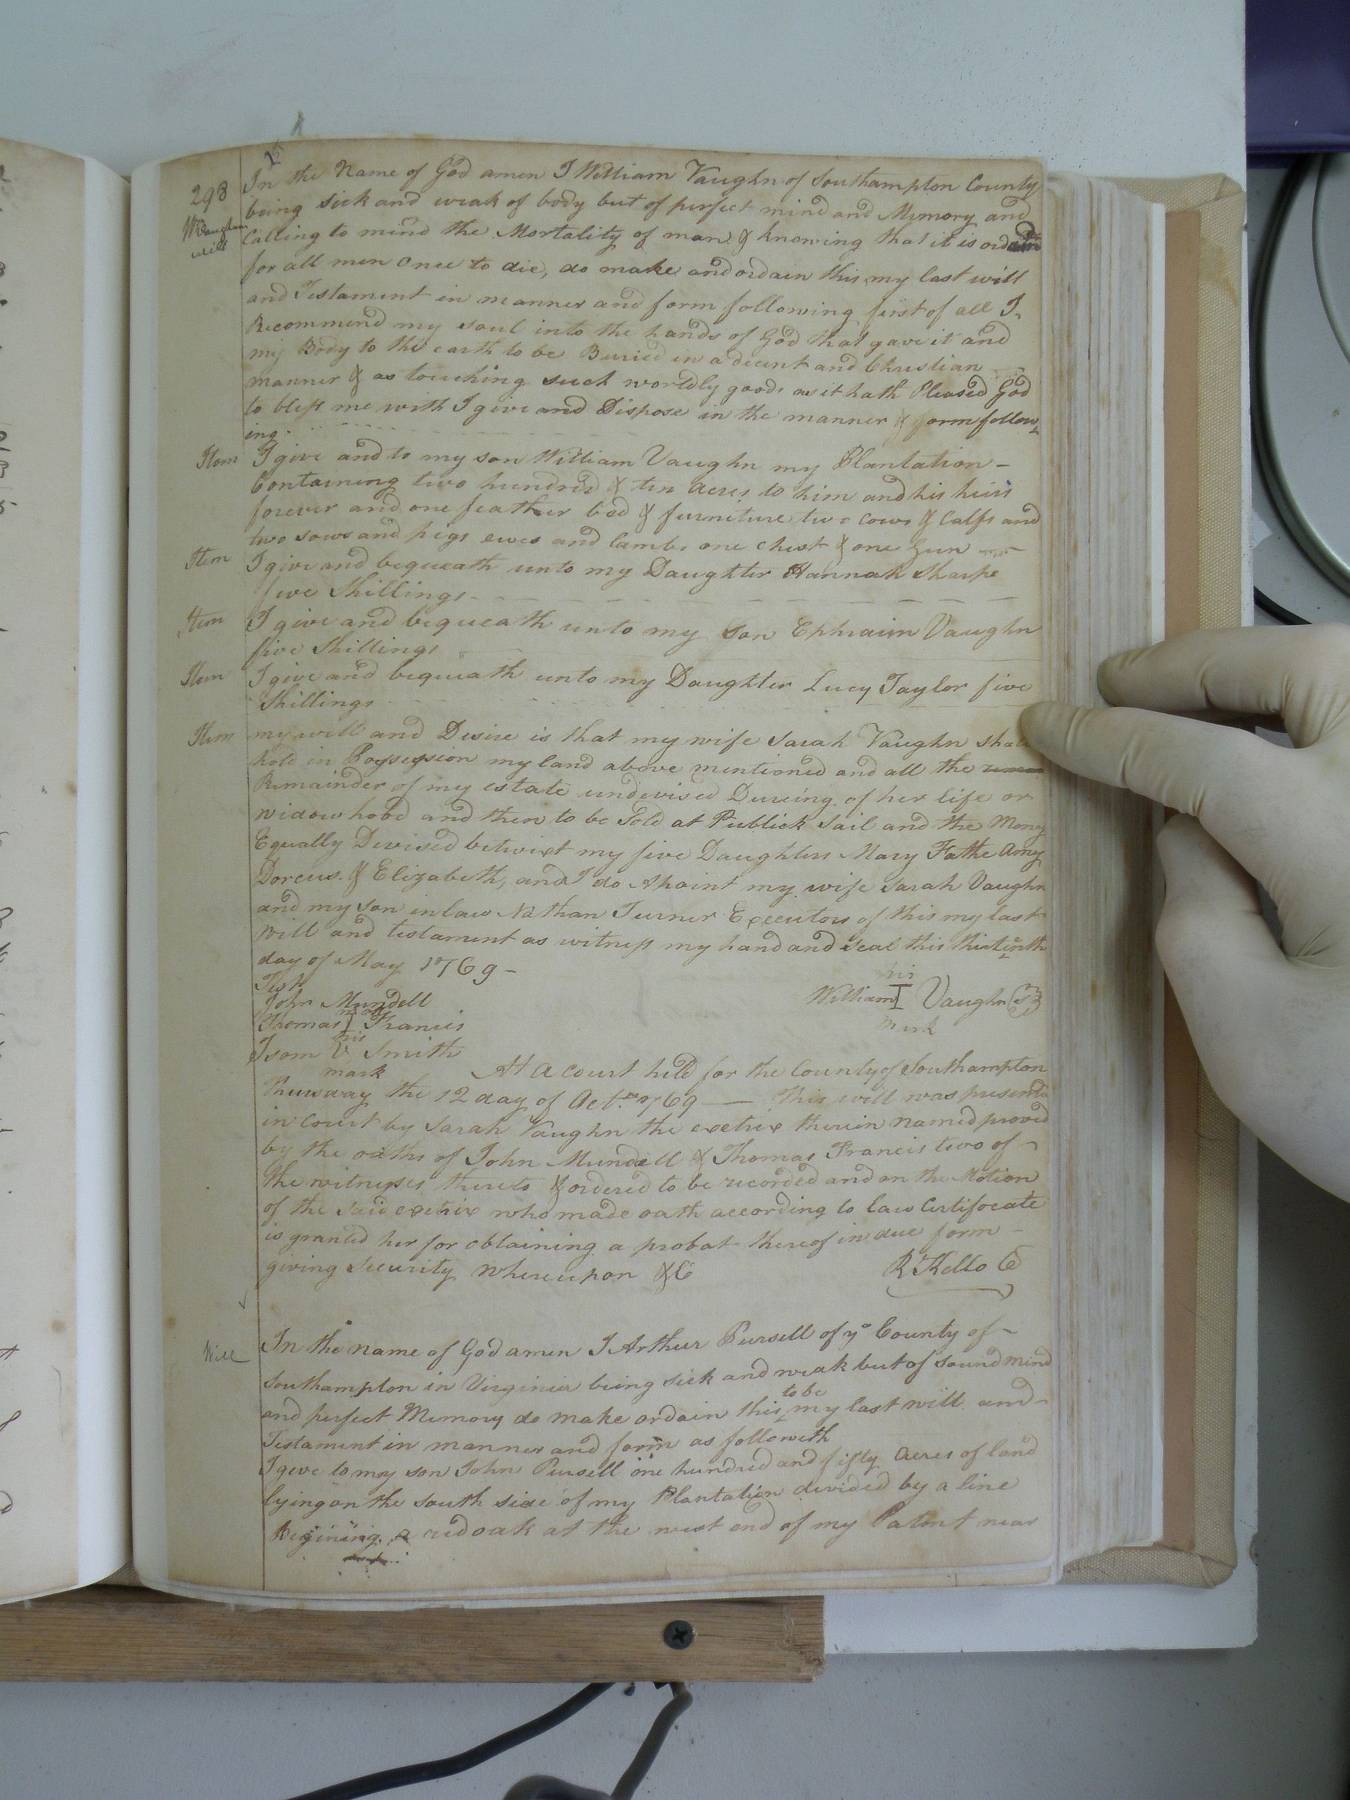 298
Wm Vaughn
will
In the Name of God amen I William Vaughn of Southampton County
being sick and weak of body but of perfect mind and Memory and
Calling to mind the Mortality of man & knowing that it is ordain
for all men once to die, do make and ordain this my last will
and Testament in manner and form following first of all I
Recommend my soul into the hands of God that gave it and
my Body to the earth to be Buried in a decent and Christian
manner & as touching such worldly goods as it hath Pleased God
to bless me with I give and Dispose in the manner & form follow
ing
Item I give and to my son William Vaughn my Plantation
Containing two hundred & ten acres to him and his heirs
forever and one feather bed & furniture two cows & Calfs and
two sows and pigs ewes and lambs one chest & one Gun
Item I give and bequeath unto my Daughter Hannah Sharpe
five Shillings
Item I give and bequeath unto my Son Ephraim Vaughn
five Shillings
Item I give and bequeath unto my Daughter Lucy Taylor five
Shillings
Item my will and Desire is that my wife Sarah Vaughn shall
hold in Possession my land above mentioned and all the
Remainder of my estate undevised Dureing of her life or
widowhood and then to be Sold at Publick Sail and the Money
Equally Devised betwixt my five Daughters Mary Fathe Amey
Dorcus & Elizabeth, and I do Apoint my wife Sarah Vaughn
and my son in law Nathan Turner Executors of this my last
will and testament as witness my hand and Seal this thirteenth
day of May 1769 -
Test
John Mundell
his
William I Vaughn (S)
mark
Thomas I Francis
his
Isom V Smith
mark
At a court held for the County of Southampton
Thursday the 12 day of Oct.r 1769 — This will was presented
in Court by Sarah Vaughn the exetrix therein named proved
by the oaths of John Mundell & Thomas Francis two of
the witnesses thereto & ordered to be recorded and on the Motion
of the said exetrix who made oath according to law Certifocate
is granted her for obtaining a probat thereof in due form
giving Security Whereupon &C
R Kello C
Will In the name of God amen I Arthur Pursell of ye County of
Southampton in Virginia being sick and weak but of sound mind
to be
and perfect Memory do make ordain this my last will and
Testament in manner and form as followeth
I give to my son John Pursell one hundred and fifty acres of land
lying on the south side of my Plantation divided by a line
Begining a red oak at the west end of my Patent near